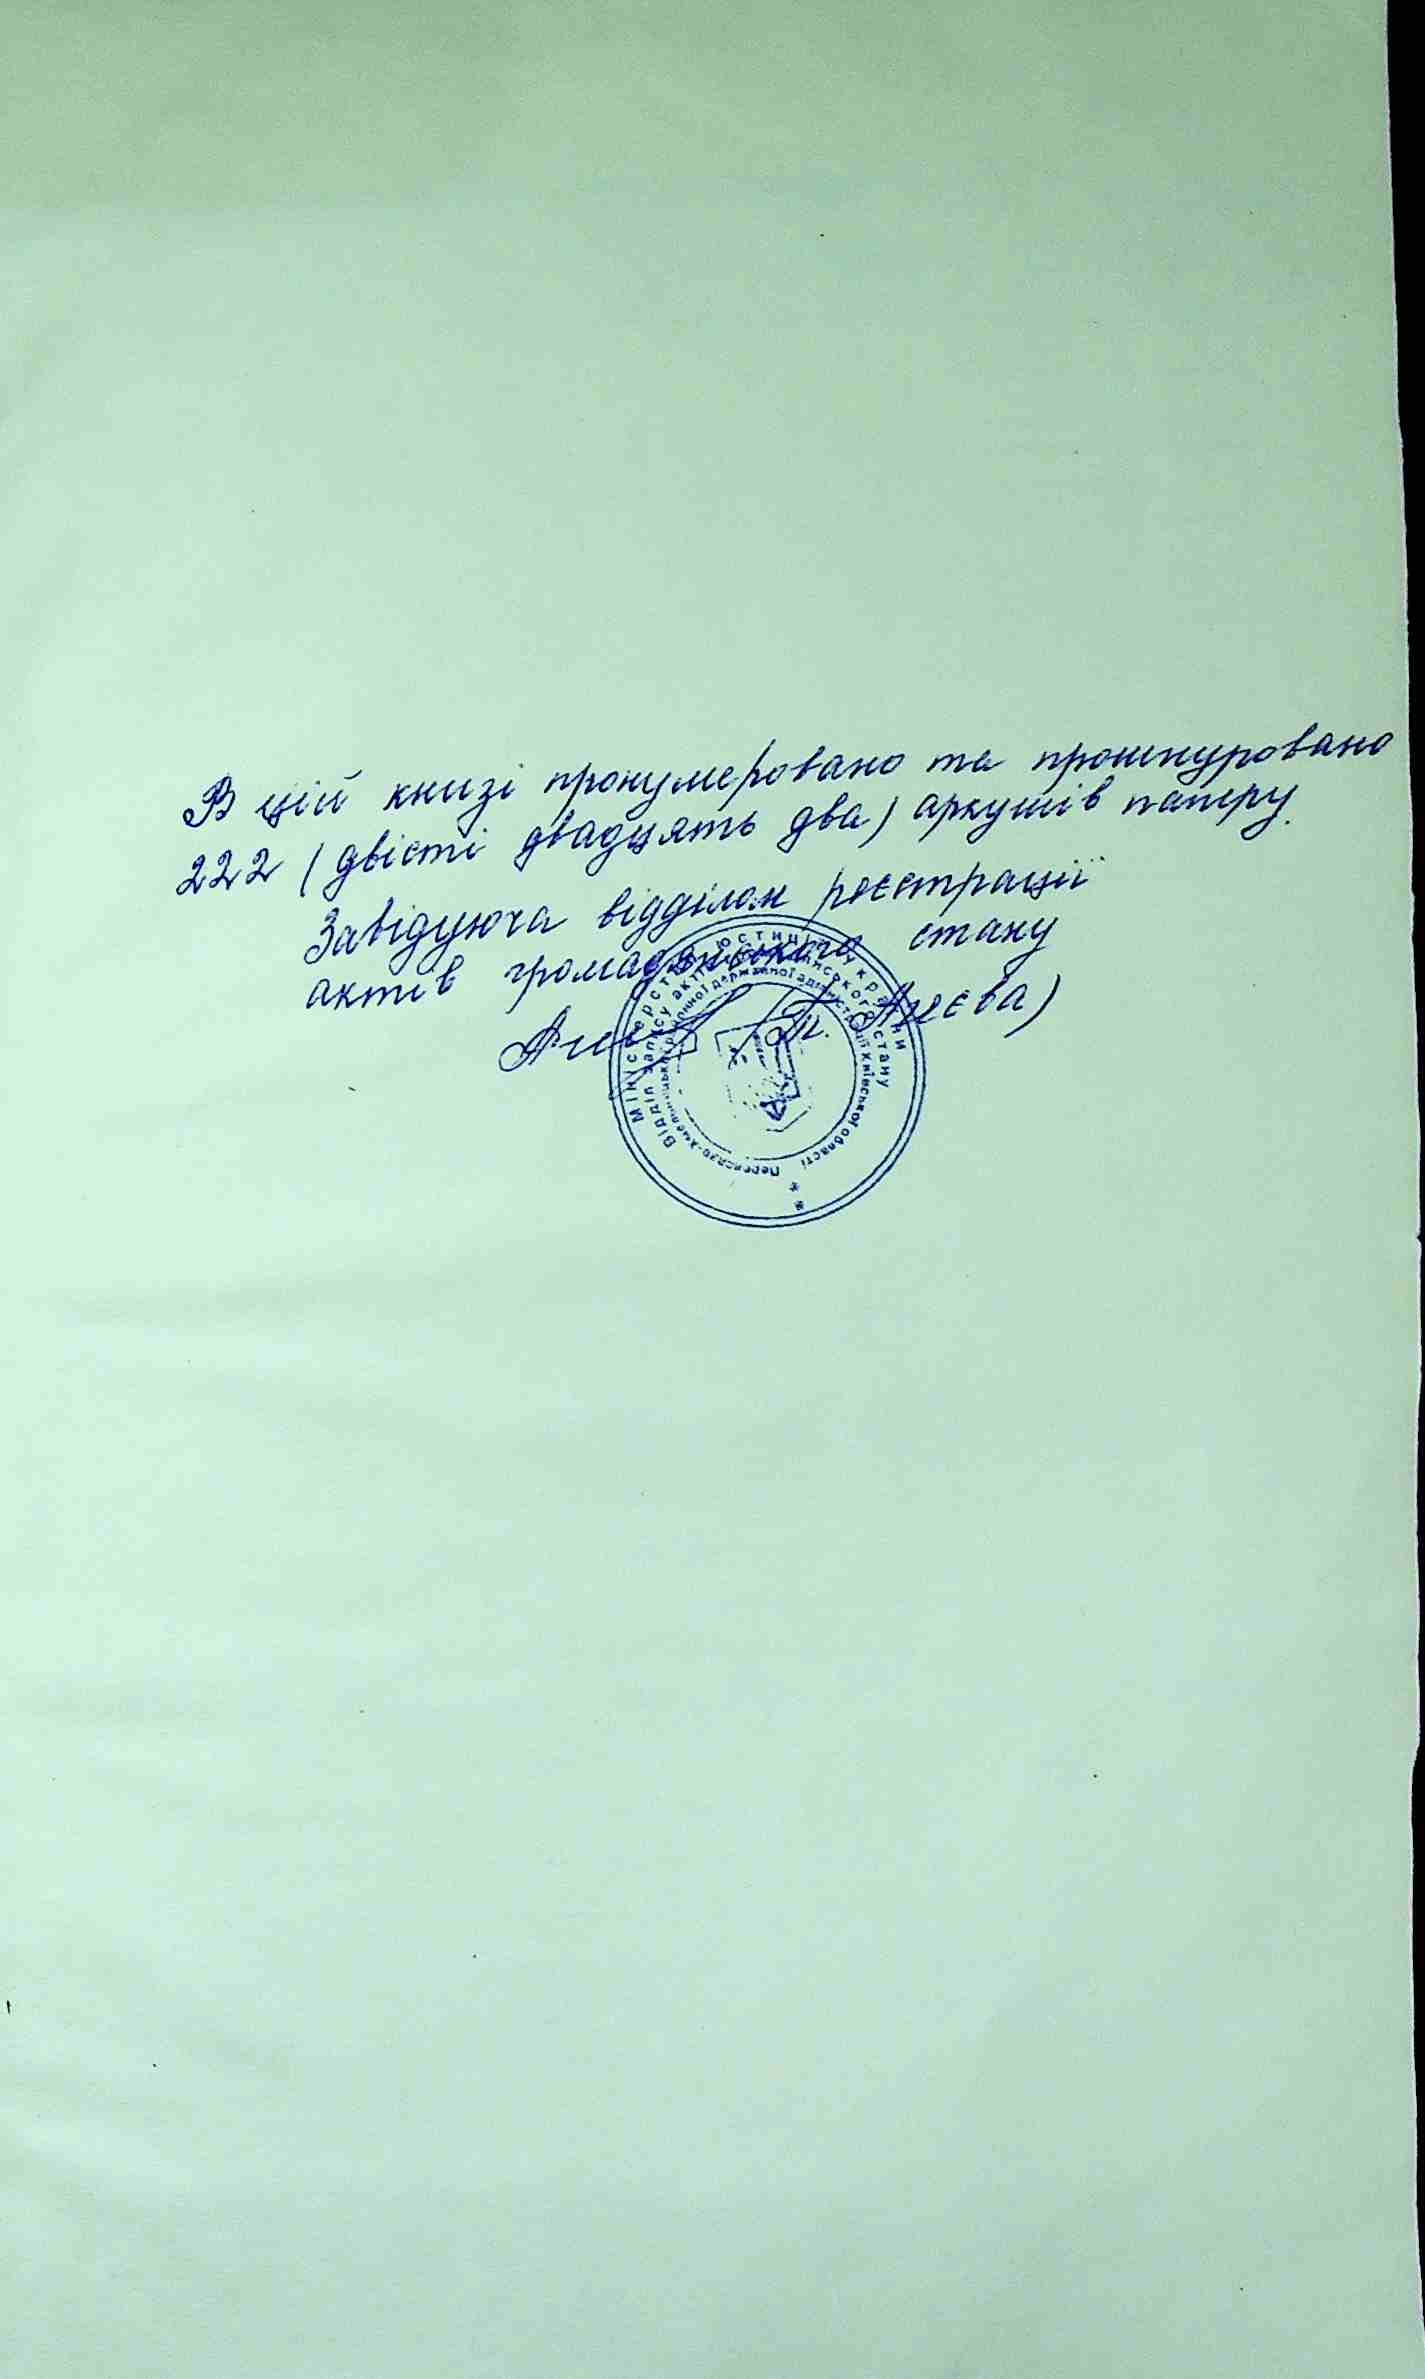 В цій книзі пронумеровано та прошнуровано
222 (двісті двадцять два) аркушів паперу.
Завідуюча відділом реєстрації
актів громадянського стану
Міністерство юстиції України
Відділ запису актів громадянського стану
Переяслав-Хмельницької районної державної адміністрації Київської області